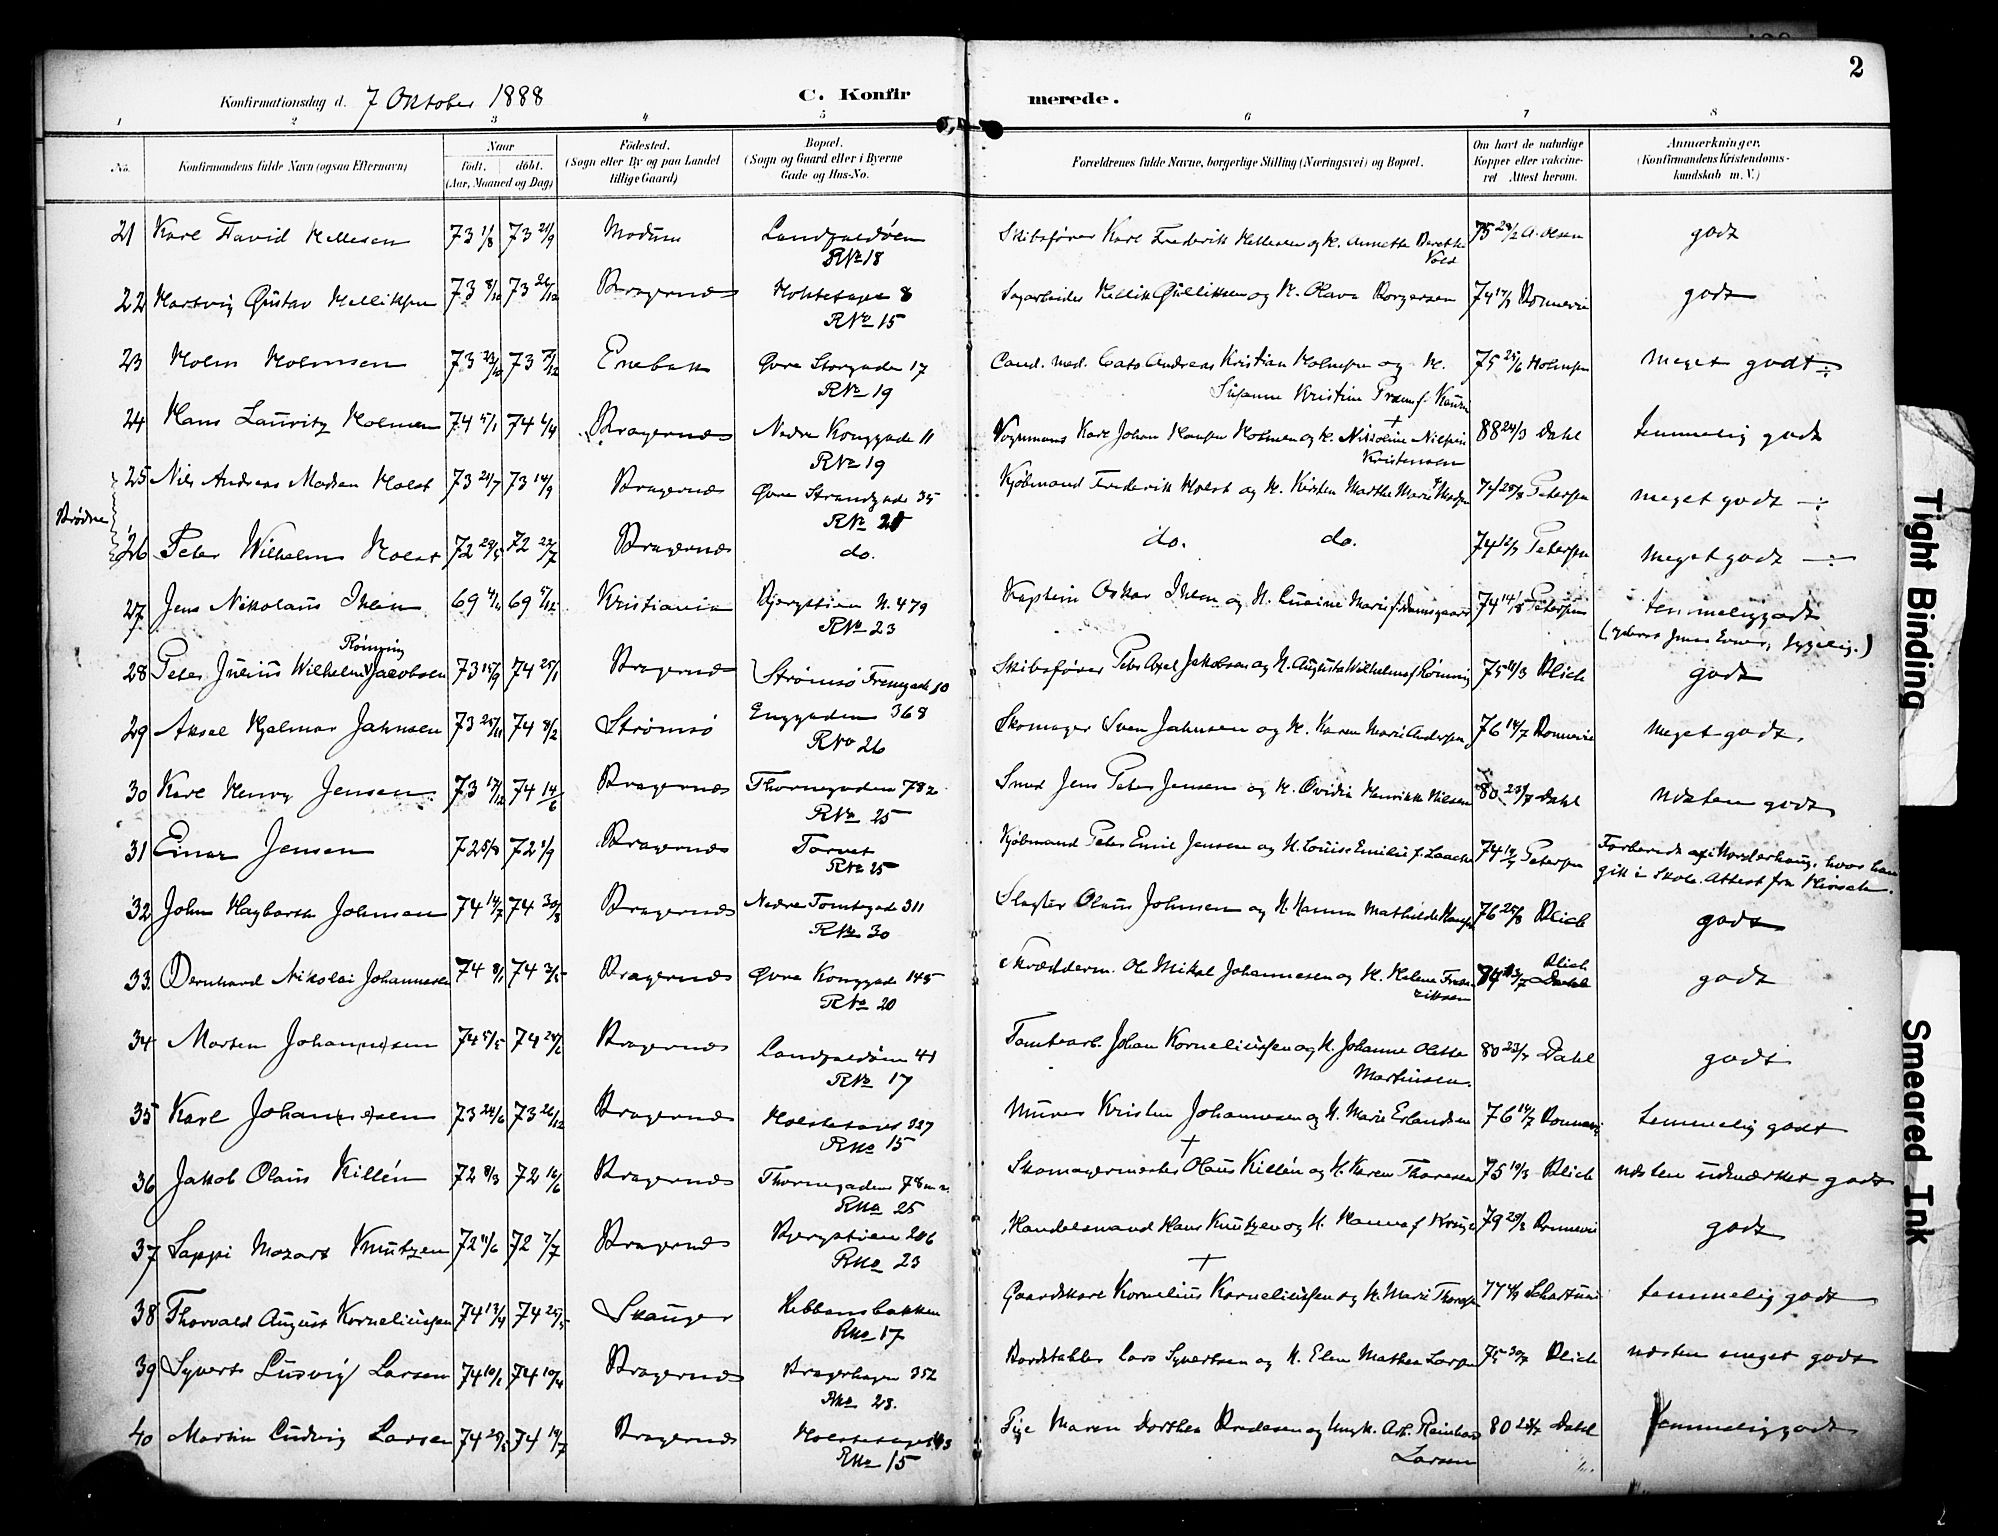 2
Konfirmationsdag d. 7 Oktober 1888
C. Konfirmerede.
1 2 3 4 5 6 7 8
No. Konfirmandens fulde Navn (ogsaa Efternavn) Naar født. døbt. (Aar, Maaned og Dag) Fødested. (Sogn eller By og paa Landet tillige Gaard) Bopæl. (Sogn og Gaard eller i Byerne Gade og Hus-No. Forældrenes fulde Navne, borgerlige Stilling (Næringsvei) og Bopæl. Om havt de naturlige Kopper eller vakcineret Attest herom. Anmærkninger. (Konfirmandens Kristendomskundskab m. V.)
21 Karl David Hellesen 73 1/8 73 21/9 Modum Landfaldøen RNo 18 Skibsfører Karl Frederik Hellesen og H. Annette Berethe Vold 75 A. Olsen godt
22 Hartvig Gustav Helliksen 73 8/10 73 26/12 Bragernæs 8 RNo 15 Sagarbeider Hellik Gulliksen og H. Olava Borgersen 74 17/7 godt
23 Holm Holmsen 73 23/10 73 Enebak Øvre Storgade 17 RNo 19 Cand. med. Cato Andreas Kristian Holmsen og H. Susanne Kristine 75 25/6 Holmsen meget godt ÷
24 Hans Lauritz Holmen 74 5/1 74 6/4 Bragernæs Nedre Konggade 11 RNo 19 Vognmand Karl Johan Hansen Holmen og H. Kristensen 88 24/3 Dahl temmelig godt
Brødre
25 Nils Andreas Madsen Holst 73 21/7 73 14/9 Bragernæs Øvre Strandgade 35 RNo 21 Kjøbmand Frederik Holst og H. Kirsten Marthe Marie Madsen 74 25/8 Petersen meget godt ÷
26 Peter Wilhelm Holst 72 29/5 72 22/7 Bragernæs do. do. do. 74 Petersen meget godt ÷
27 Jens Nikolaus Ihlen 69 69 Kristiania Bjergstien N. 479 RNo 23 Kaptein Oskar Ihlen og H. Marie 74 14/8 Petersen temmelig godt
28 Peter Julius Wilhelm Rønning Jacobsen 73 15/9 74 25/1 Bragernæs Strømsø Tregade 10 Skibsfører Peter Axel Jakobsen og H. Augusta Wilhelmine f. Rønning 75 11/3 Blich godt
29 Aksel Hjalmar Jahnsen 73 25/11 74 8/2 Strømsø Enggaden 368 RNo 26 Skomager Sven Jahnsen og H. Karen Marie Andersen 76 14/7 meget godt.
30 Karl Henry Jensen 73 17/12 74 14/6 Bragernæs Thornegaden 782 RNo 25 Smed Jens Peter Jensen og H. Ovidia Henrikke Nilsen 80 23/7 Dahl næsten godt
31 Einar Jensen 72 5/8 72 1/9 Bragernæs Torvet RNo 25 Kjøbmand Peter Emil Jensen og H. Louise Emilie f. Laache 74 Petersen Forberedt i Norderhoug, hvor han gik i Skole. Attest fra Hirsch.
32 John Hagbarth Johnsen 74 14/7 74 30/8 Bragernæs Nedre Tomtegade 311 RNo 30 Slagter Olaus Johnsen og H. Hanna Mathilde Hansen 76 25/8 Blich godt
33. Bernhard Nikolai Johannesen 74 8/1 74 3/5 Bragernæs Øvre Konggade 145 RNo 20 Skrædderm. Ole Mikal Johannesen og H. Helene Frederiksen Blich godt
34 Morten Johannesen 74 5/5 74 24/6 Bragernæs Landfaldøen 41 RNo 17 Tomtearb. Johan Korneliussen og H. Johanne Olette Martinsen. 80 23/7 Dahl godt
35 Karl Johannesen 73 24/6 73 26/12 Bragernæs 327 RNo 15 Murer Kristen Johannesen og H. Marie Erlandsen 76 14/7 temmelig godt
36 Jakob Olaus Killén 72 8/3 72 16/6 Bragernæs Thornegaden 78 RNo 25 Skomagermester Olaus Killén og H. Karen Thoresen 75 19/3 Blich næsten udmærket godt
37 Seppi Mozart Knutzen 72 11/6 72 7/7 Bragernæs Bjergstien 206 RNo 23 Handelsmand Hans Knutzen og H. Hanna f. 79 godt
38 Thorvald August Korneliussen 74 13/4 74 25/5 Skauger Kibbansbakken RNo 17 Gaardskarl Kornelius Korneliussen og H. Marie 77 temmelig godt
39 Syvert Lusvig Larsen 74 10/1 74 19/4 Bragernæs Bragerhagen 352 RNo 28. Bordstabler Lars Syvertsen og H. Elen Mathea Larsen 75 30/7 Blich næsten meget godt
40 Martin Ludvig Larsen 74 29/5 74 19/7 Bragernæs RNo 15 Pige Maren Dorthea og Ungk. Arb. Reinhard Larsen 80 Dahl temmelig godt
Tight Binding
Smeared Ink